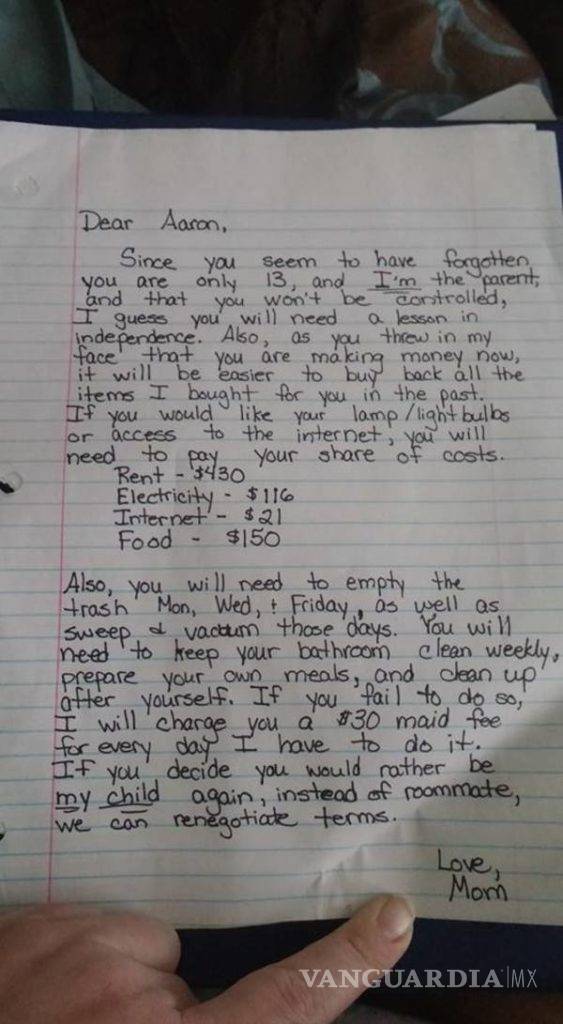 Dear Aaron,
Since you seem to have forgotten
you are only 13, and I'm the parent,
and that you won't be controlled,
I guess you will need a lesson in
independence. Also, as you threw in my
face that you are making money now,
it will be easier to buy back all the
items I bought for you in the past.
If you would like your lamp/light bulbs
or access to the internet, you will
need to pay your share of costs.
Rent - $430
Electricity - $116
Internet - $21
Food - $150
Also, you will need to empty the
trash Mon, Wed, + Friday, as well as
sweep & vacuum those days. You will
need to keep your bathroom clean weekly,
prepare your own meals, and clean up
after yourself. If you fail to do so,
I will charge you a $30 maid fee
for every day I have to do it.
If you decide you would rather be
my child again, instead of roommate,
we can renegotiate terms.
Love,
Mom
VANGUARDIA|MX